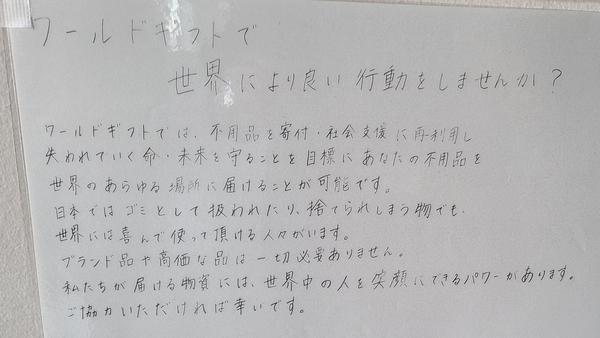 ワールドギフトで
世界により良い行動をしませんか?
ワールドギフトでは、不用品を寄付・社会支援に再利用し
失われていく命・未来を守ることを目標にあなたの不用品を
世界のあらゆる場所に届けることが可能です。
日本ではゴミとして扱われたり、捨てられしまう物でも、
世界には喜んで使って頂ける人々がいます。
ブランド品や高価な品は一切必要ありません。
私たちが届ける物資には、世界中の人を笑顔にできるパワーがあります。
ご協力いただければ幸いです。